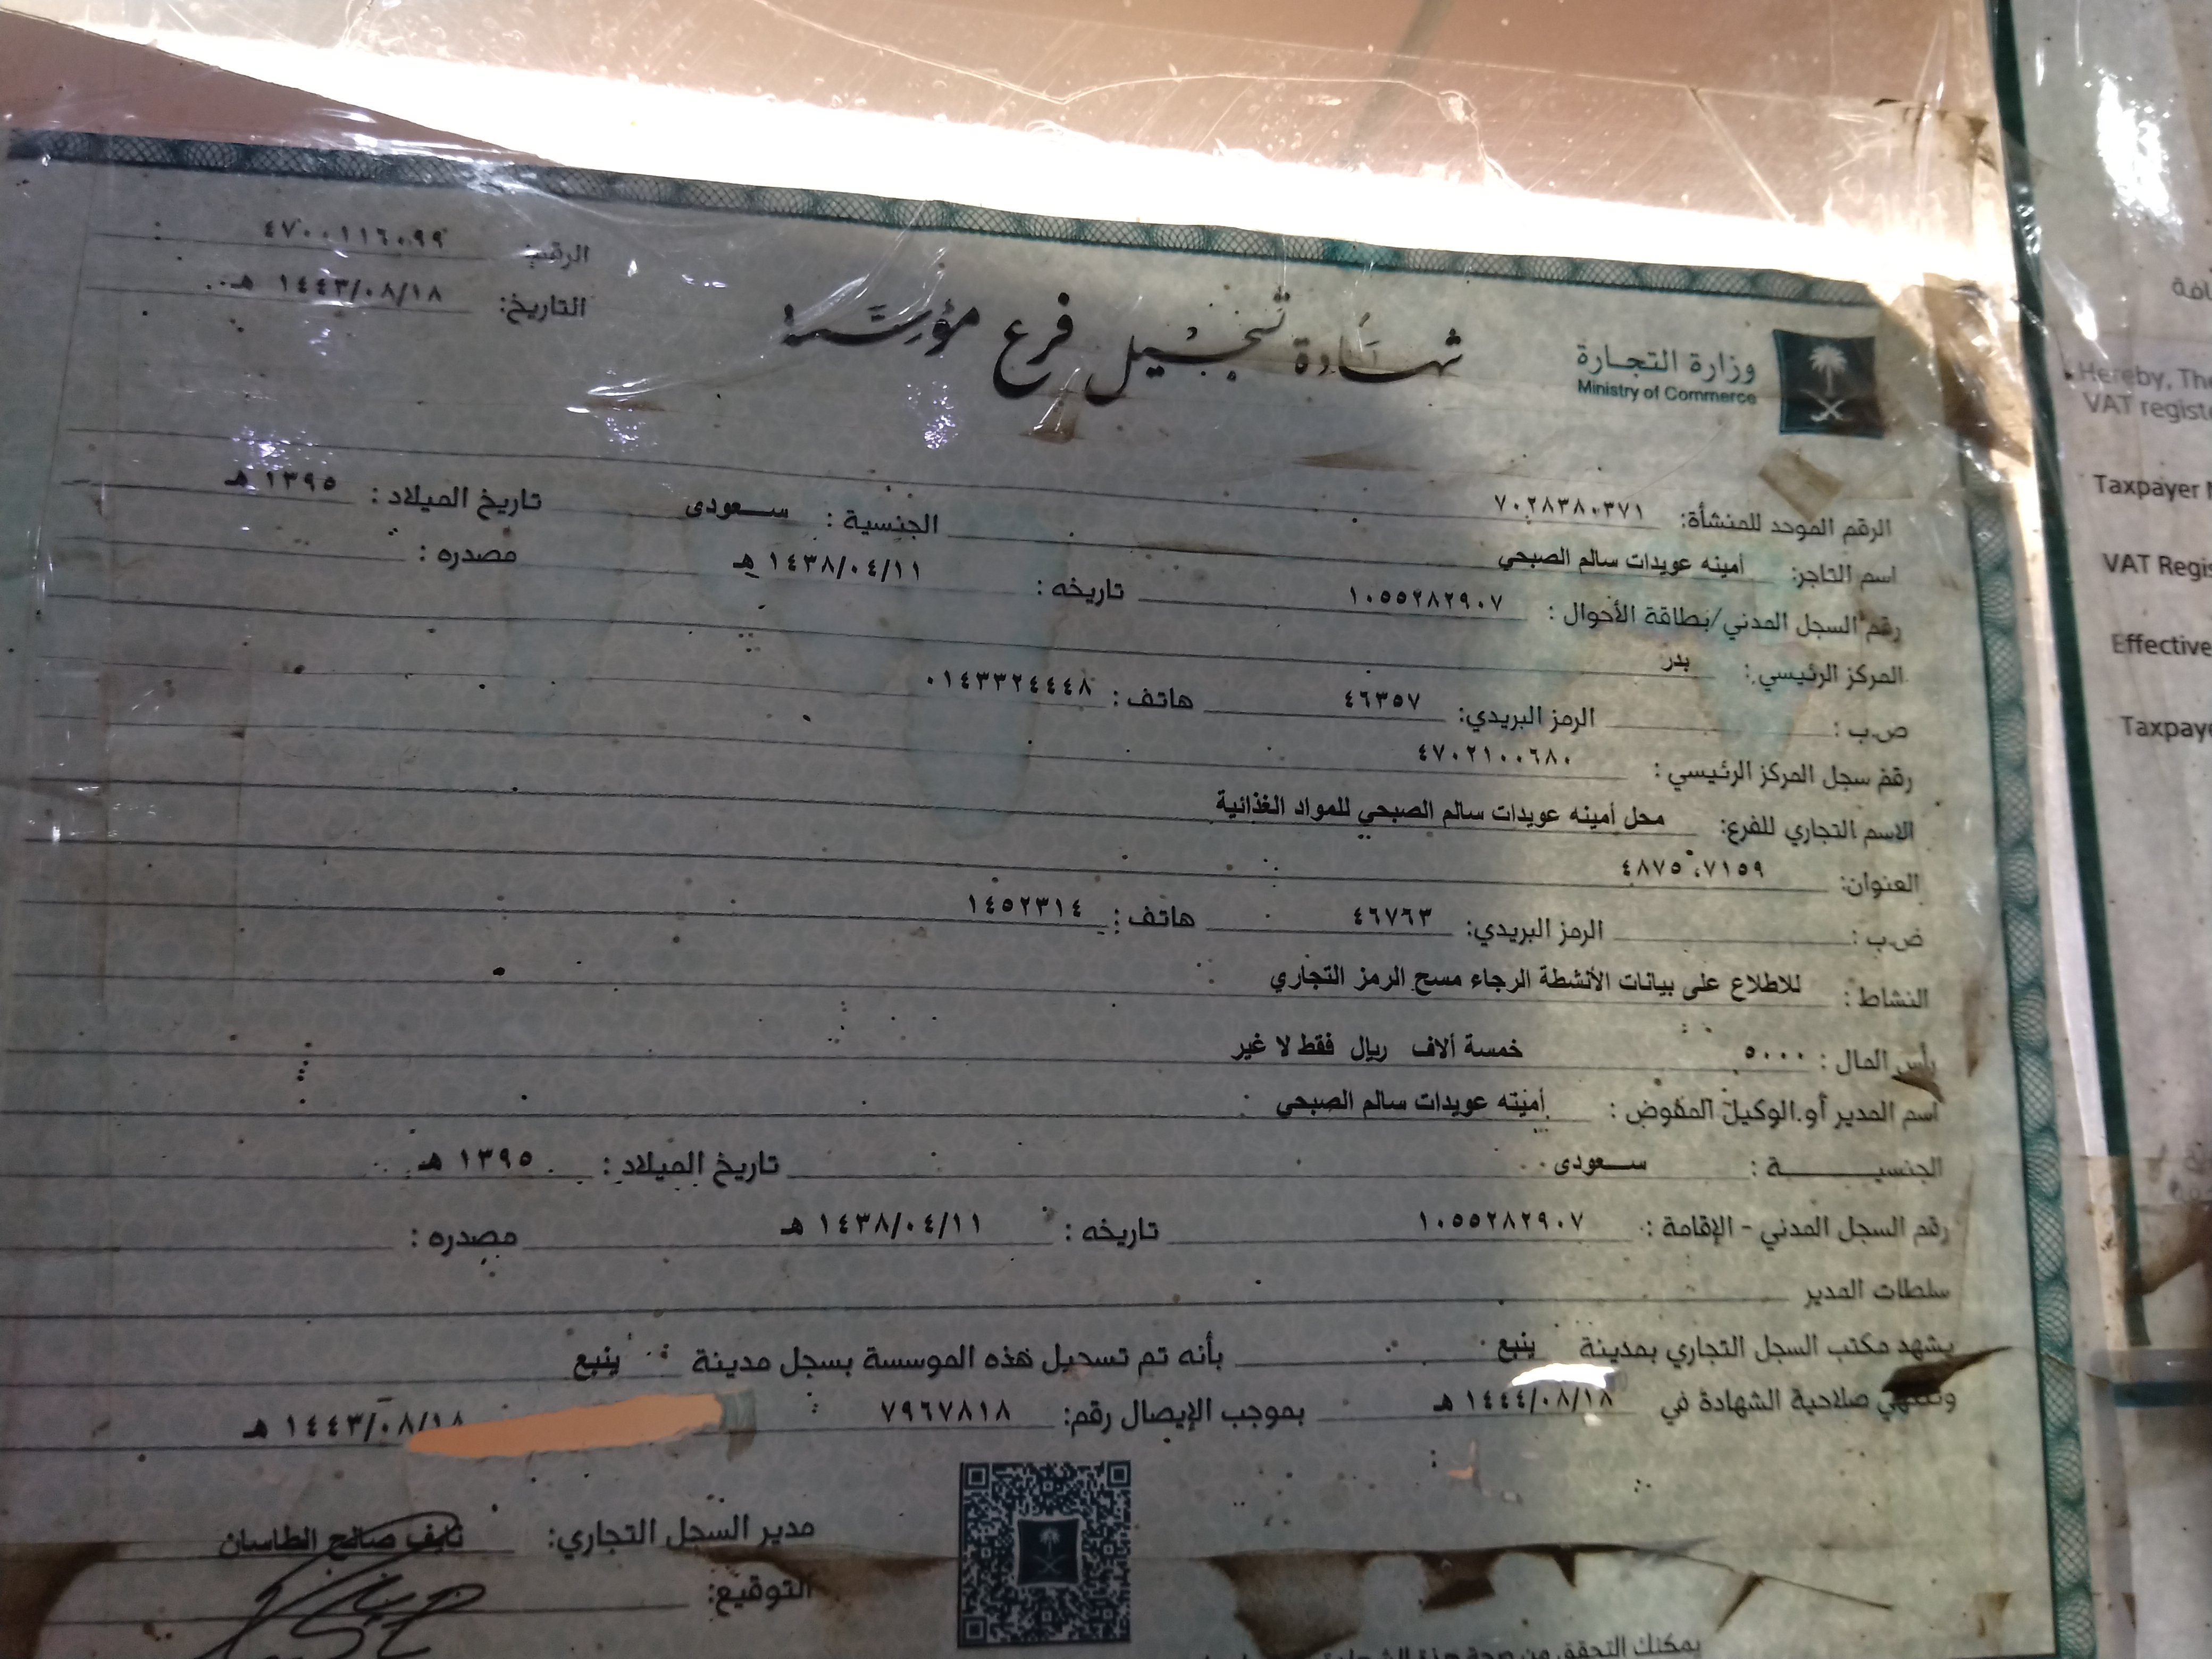 الرقم: ٤٧٠٠١١٦٠٩٩
التاريخ: ١٤٤٣/٠٨/١٨ هـ
وزارة التجارة
Ministry of Commerce
شهادة تسجيل فرع مؤسسة
الرقم الموحد للمنشأة: ٧٠٢٨٣٨٠٣٧١
اسم التاجر: أمينه عويدات سالم الصبحي الجنسية: سعودى تاريخ الميلاد: ١٣٩٥ هـ
رقم السجل المدني/بطاقة الأحوال: ١٠٥٥٢٨٢٩٠٧ تاريخه: ١٤٣٨/٠٤/١١ هـ مصدره:
المركز الرئيسي: بدر
ص.ب: الرمز البريدي: ٤٦٣٥٧ هاتف: ٠١٤٣٣٢٤٤٤٨
رقم سجل المركز الرئيسي: ٤٧٠٢١٠٠٦٨٠
الاسم التجاري للفرع: محل أمينه عويدات سالم الصبحي للمواد الغذائية
العنوان: ٧١٥٩، ٤٨٧٥
ص.ب: الرمز البريدي: ٤٦٧٦٣ هاتف: ١٤٥٢٣١٤
النشاط: للاطلاع على بيانات الأنشطة الرجاء مسح الرمز التجاري
رأس المال: ٥٠٠٠ خمسة ألاف ريال فقط لا غير
اسم المدير أو الوكيل المفوض: أمينه عويدات سالم الصبحي
الجنسيـــة: سعودى تاريخ الميلاد: ١٣٩٥ هـ
رقم السجل المدني - الإقامة: ١٠٥٥٢٨٢٩٠٧ تاريخه: ١٤٣٨/٠٤/١١ هـ مصدره:
سلطات المدير
يشهد مكتب السجل التجاري بمدينة ينبع بأنه تم تسجيل هذه الموسسة بسجل مدينة ينبع
وتنتهي صلاحية الشهادة في ١٤٤٤/٠٨/١٨ هـ بموجب الإيصال رقم: ٧٩٦٧٨١٨ ١٤٤٣/٠٨/١٨ هـ
مدير السجل التجاري: نايف صالح الطاسان
التوقيع:
يمكنك التحقق من صحة هذه الشهادة
Hereby, The
VAT
Taxpayer
VAT
Effective